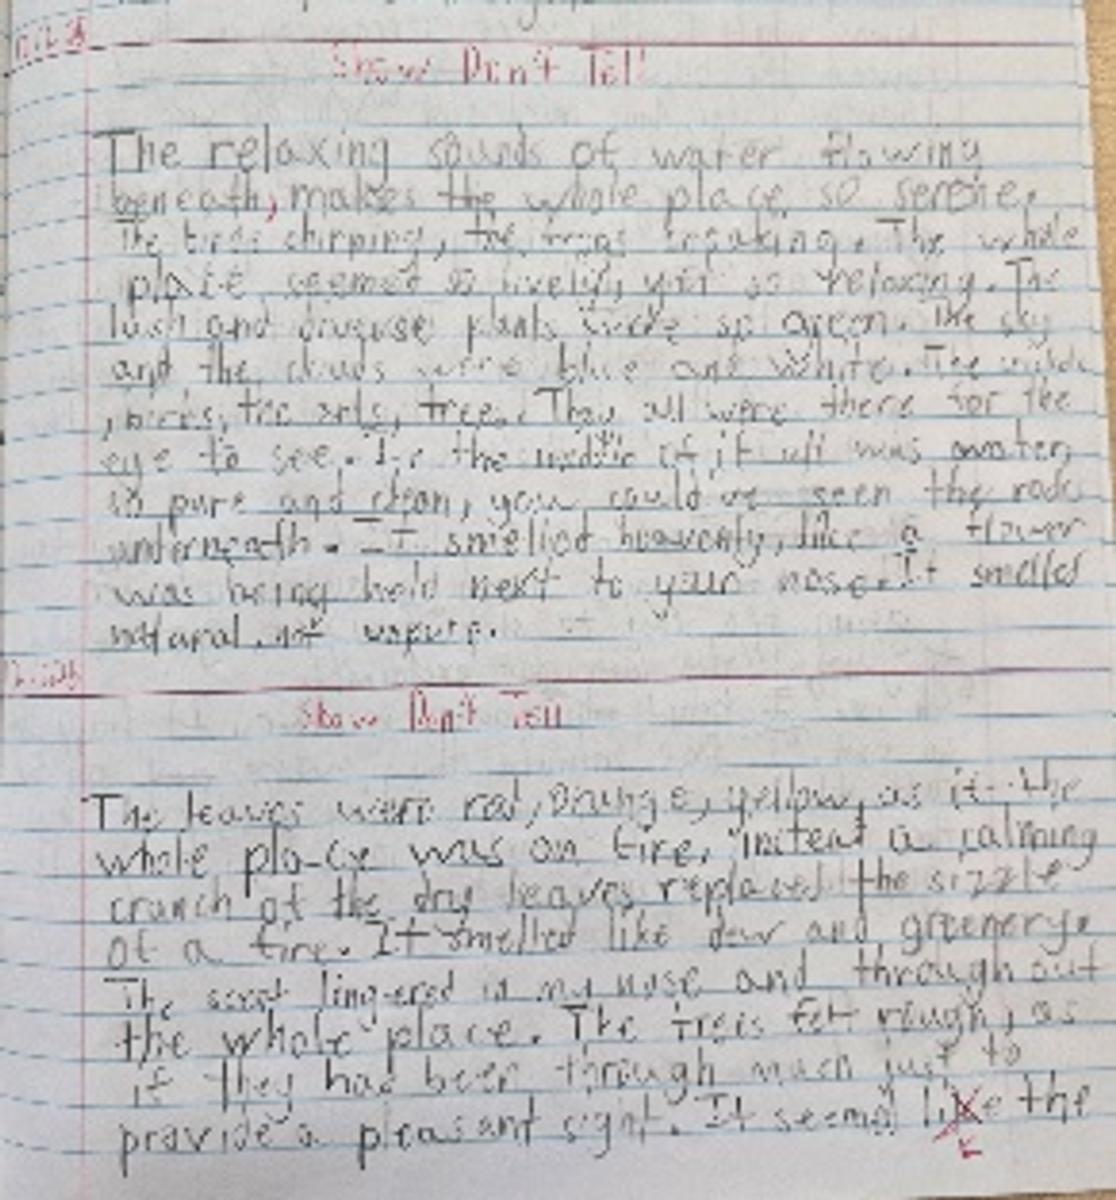 Show Don't Tell
The relaxing sounds of water flowing
beneath, makes the whole place so serene.
The birds chirping, the frogs croaking. The whole
place seemed so lively, yet so relaxing. The
lush and diverse plants were so green. The sky
and the clouds were blue and white. The
birds, the ants, trees. They all were there for the
eye to see. In the middle of it all was water,
so pure and clean, you could've seen the rocks
underneath. It smelled heavenly, like a flower
was being held next to your nose. It smelled
natural, not
Show Don't Tell
The leaves were red, orange, yellow, as if the
whole place was on fire. instead a calming
crunch of the dry leaves replaced the sizzle
of a fire. It smelled like dew and greenery.
The scent lingered in my nose and throughout
the whole place. The trees felt rough, as
if they had been through much just to
provide a pleasant sight. It seemed like the